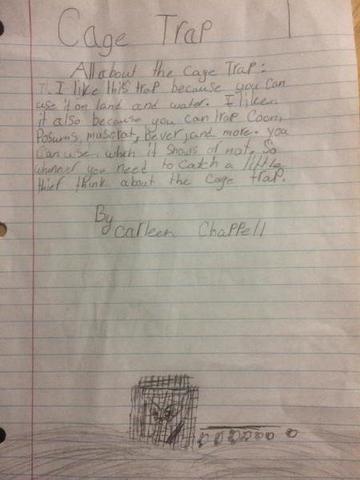 Cage Trap
All about the Cage Trap:
I like this trap because you can
use it on land and water. I like
it also because you can trap Coon,
Posums, muscrat, bever, and more. you
can use when it snows of not. So
whenever you need to catch a little
thief think about the Cage trap.
By
Carleen Chappell